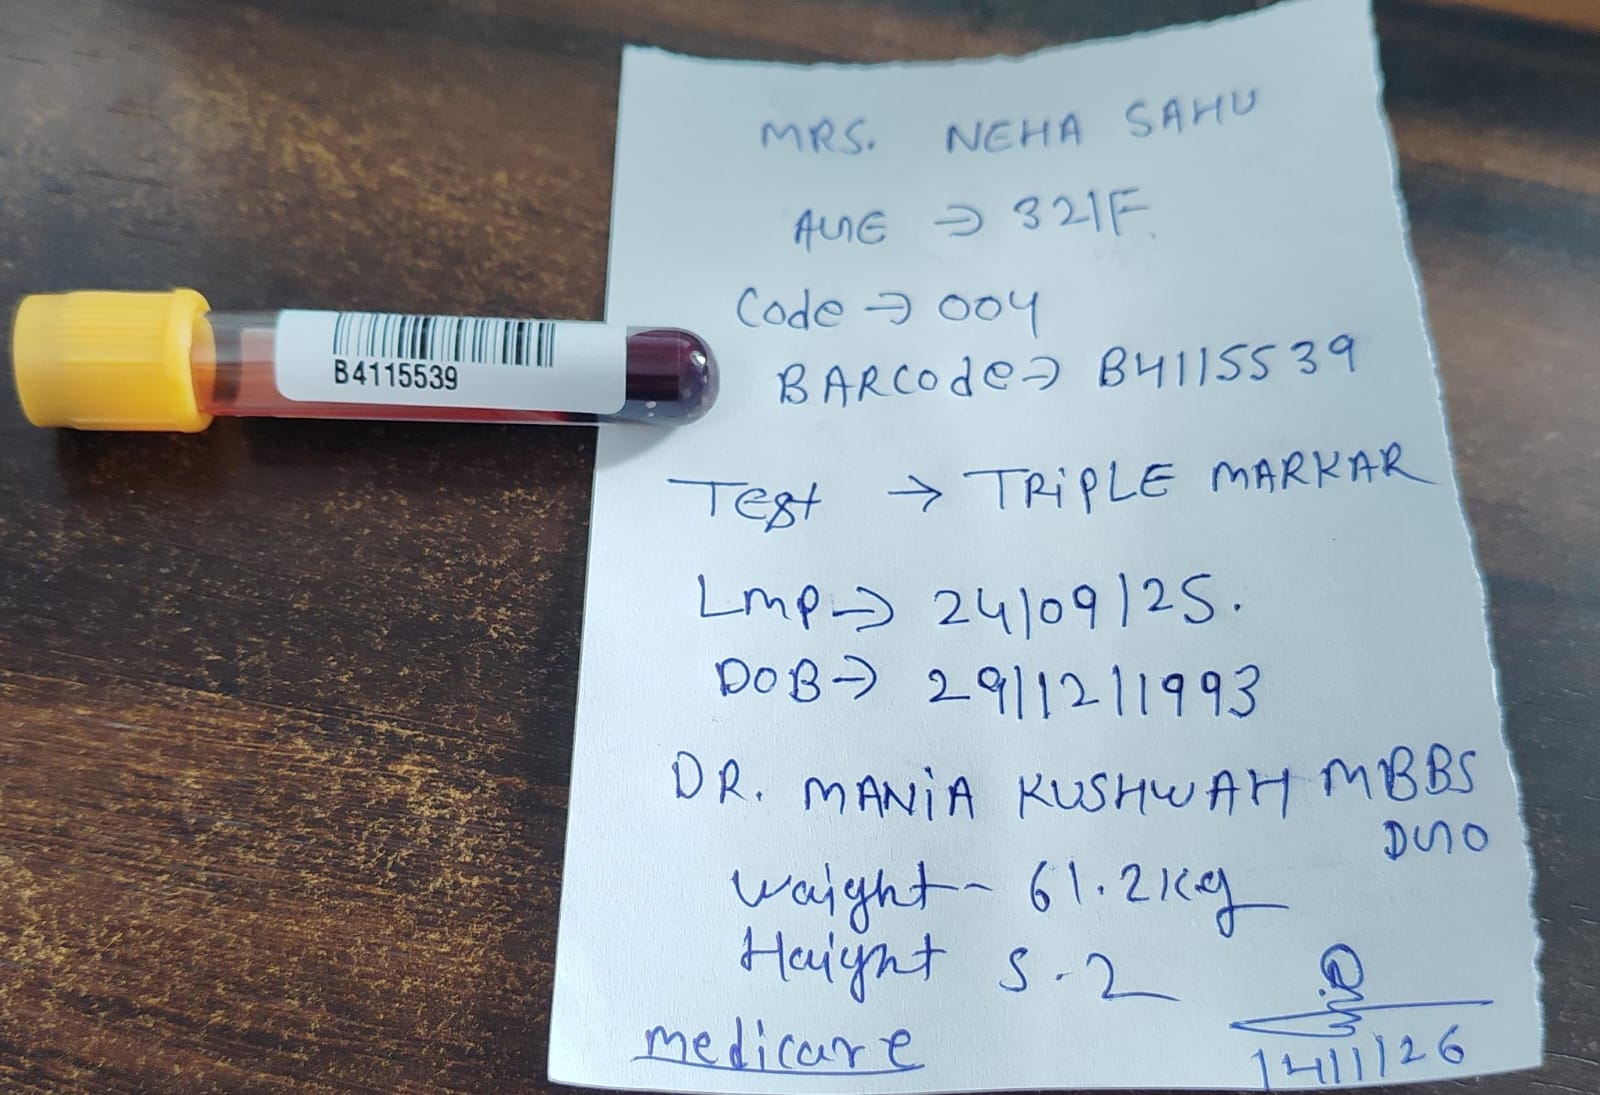 B4115539
MRS. NEHA SAHU
AGE → 32/F.
Code → 004
BARCode → B4115539
Test → TRiPLE MARKAR
LMP → 24/09/25.
DOB → 29/12/1993
DR. MANiA KUSHWAH MBBS
DGO
Waight - 61.2 Kg
Haight 5-2
medicare
14/1/26